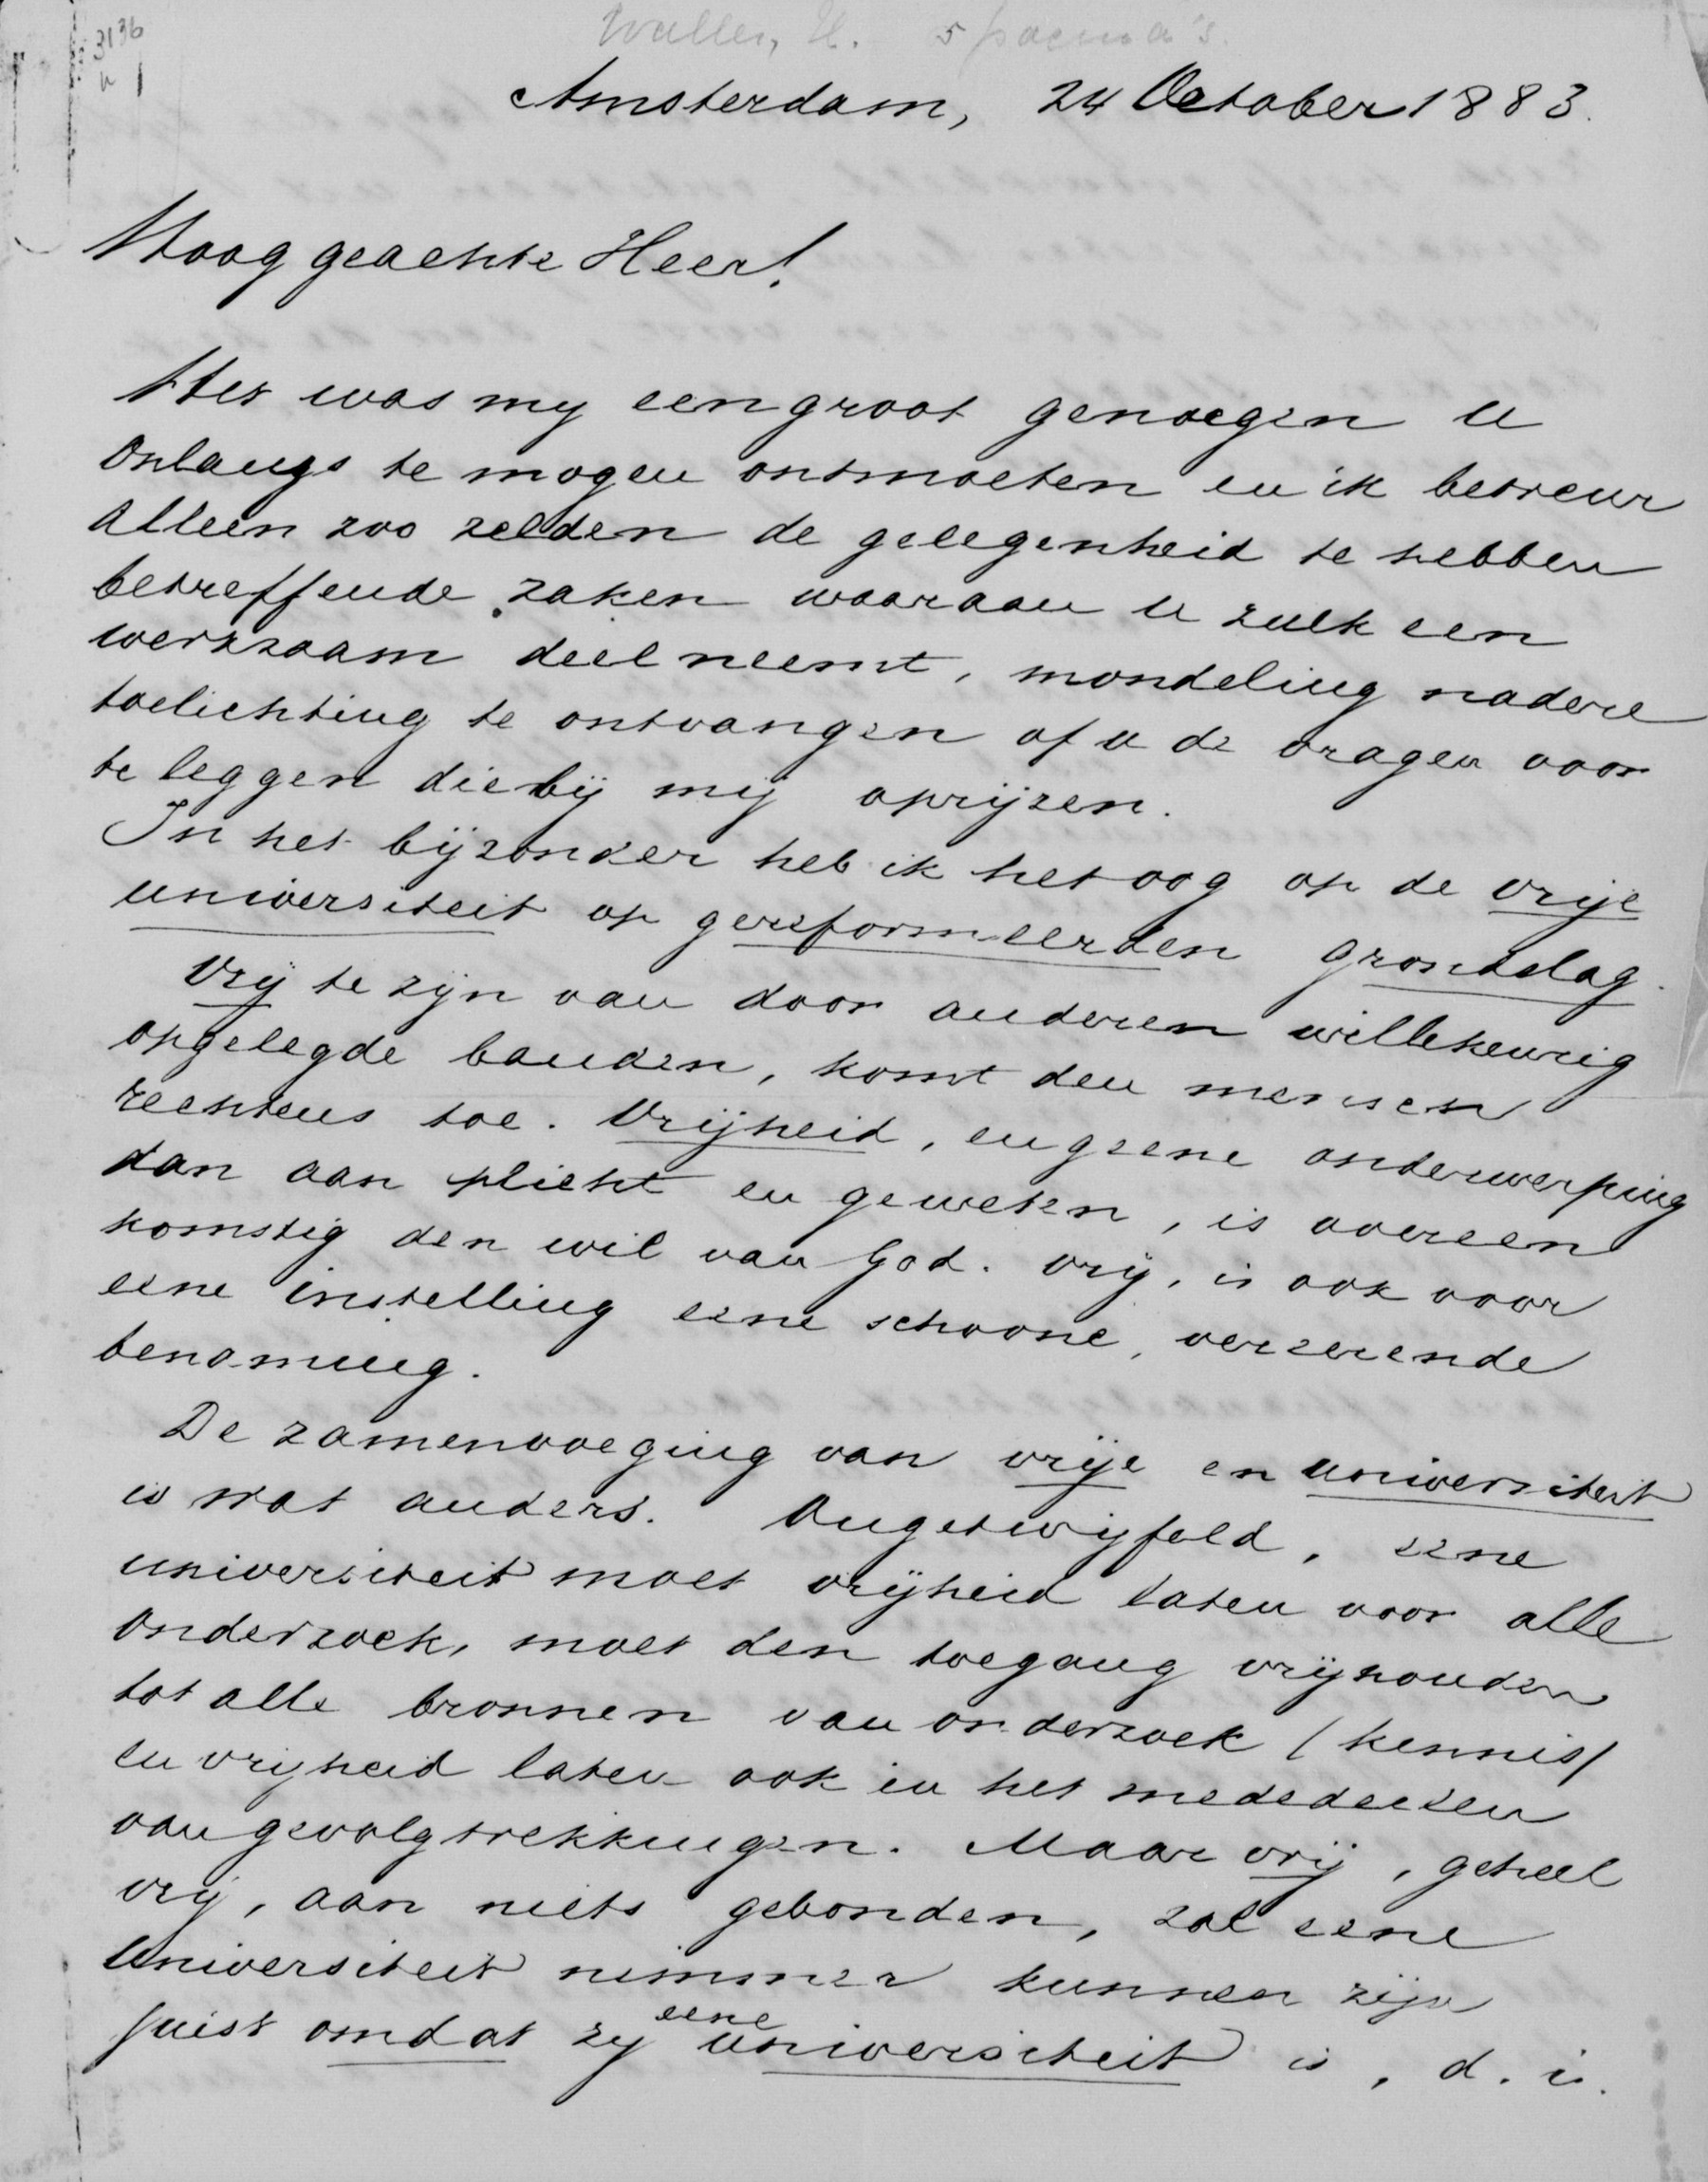 3136
Waller, H. 5 pagina's.
Amsterdam, 24 October 1883.
Hooggeachte Heer!
Het was my een groot genoegen U
onlangs te mogen ontmoeten en ik betreur
alleen zoo zelden de gelegenheid te hebben
betreffende zaken waaraan U zulk een
werkzaam deel neemt, mondeling nadere
toelichting te ontvangen of U de vragen voor
te leggen die bij mij oprijzen.
In het bijzonder heb ik het oog op de vrije
universiteit op gereformeerden grondslag.
Vrij te zijn van door anderen willekeurig
opgelegde banden, komt den mensch
rechtens toe. Vrijheid, en geene onderwerping
dan aan plicht en geweten, is overeen
komstig den wil van God. Vrij, is ook voor
eene instelling eene schoone, vereerende
benaming.
De zamenvoeging van vrije en universiteit
is wat anders. Ongetwijfeld, eene
universiteit moet vrijheid laten voor alle
onderzoek, moet den toegang vrijhouden
tot alle bronnen van onderzoek (kennis)
en vrijheid laten ook in het mededeelen
van gevolgtrekkingen. Maar vrij, geheel
vrij, aan niets gebonden, zal eene
Universiteit nimmer kunnen zijn
juist omdat zy eene universiteit is, d. i.